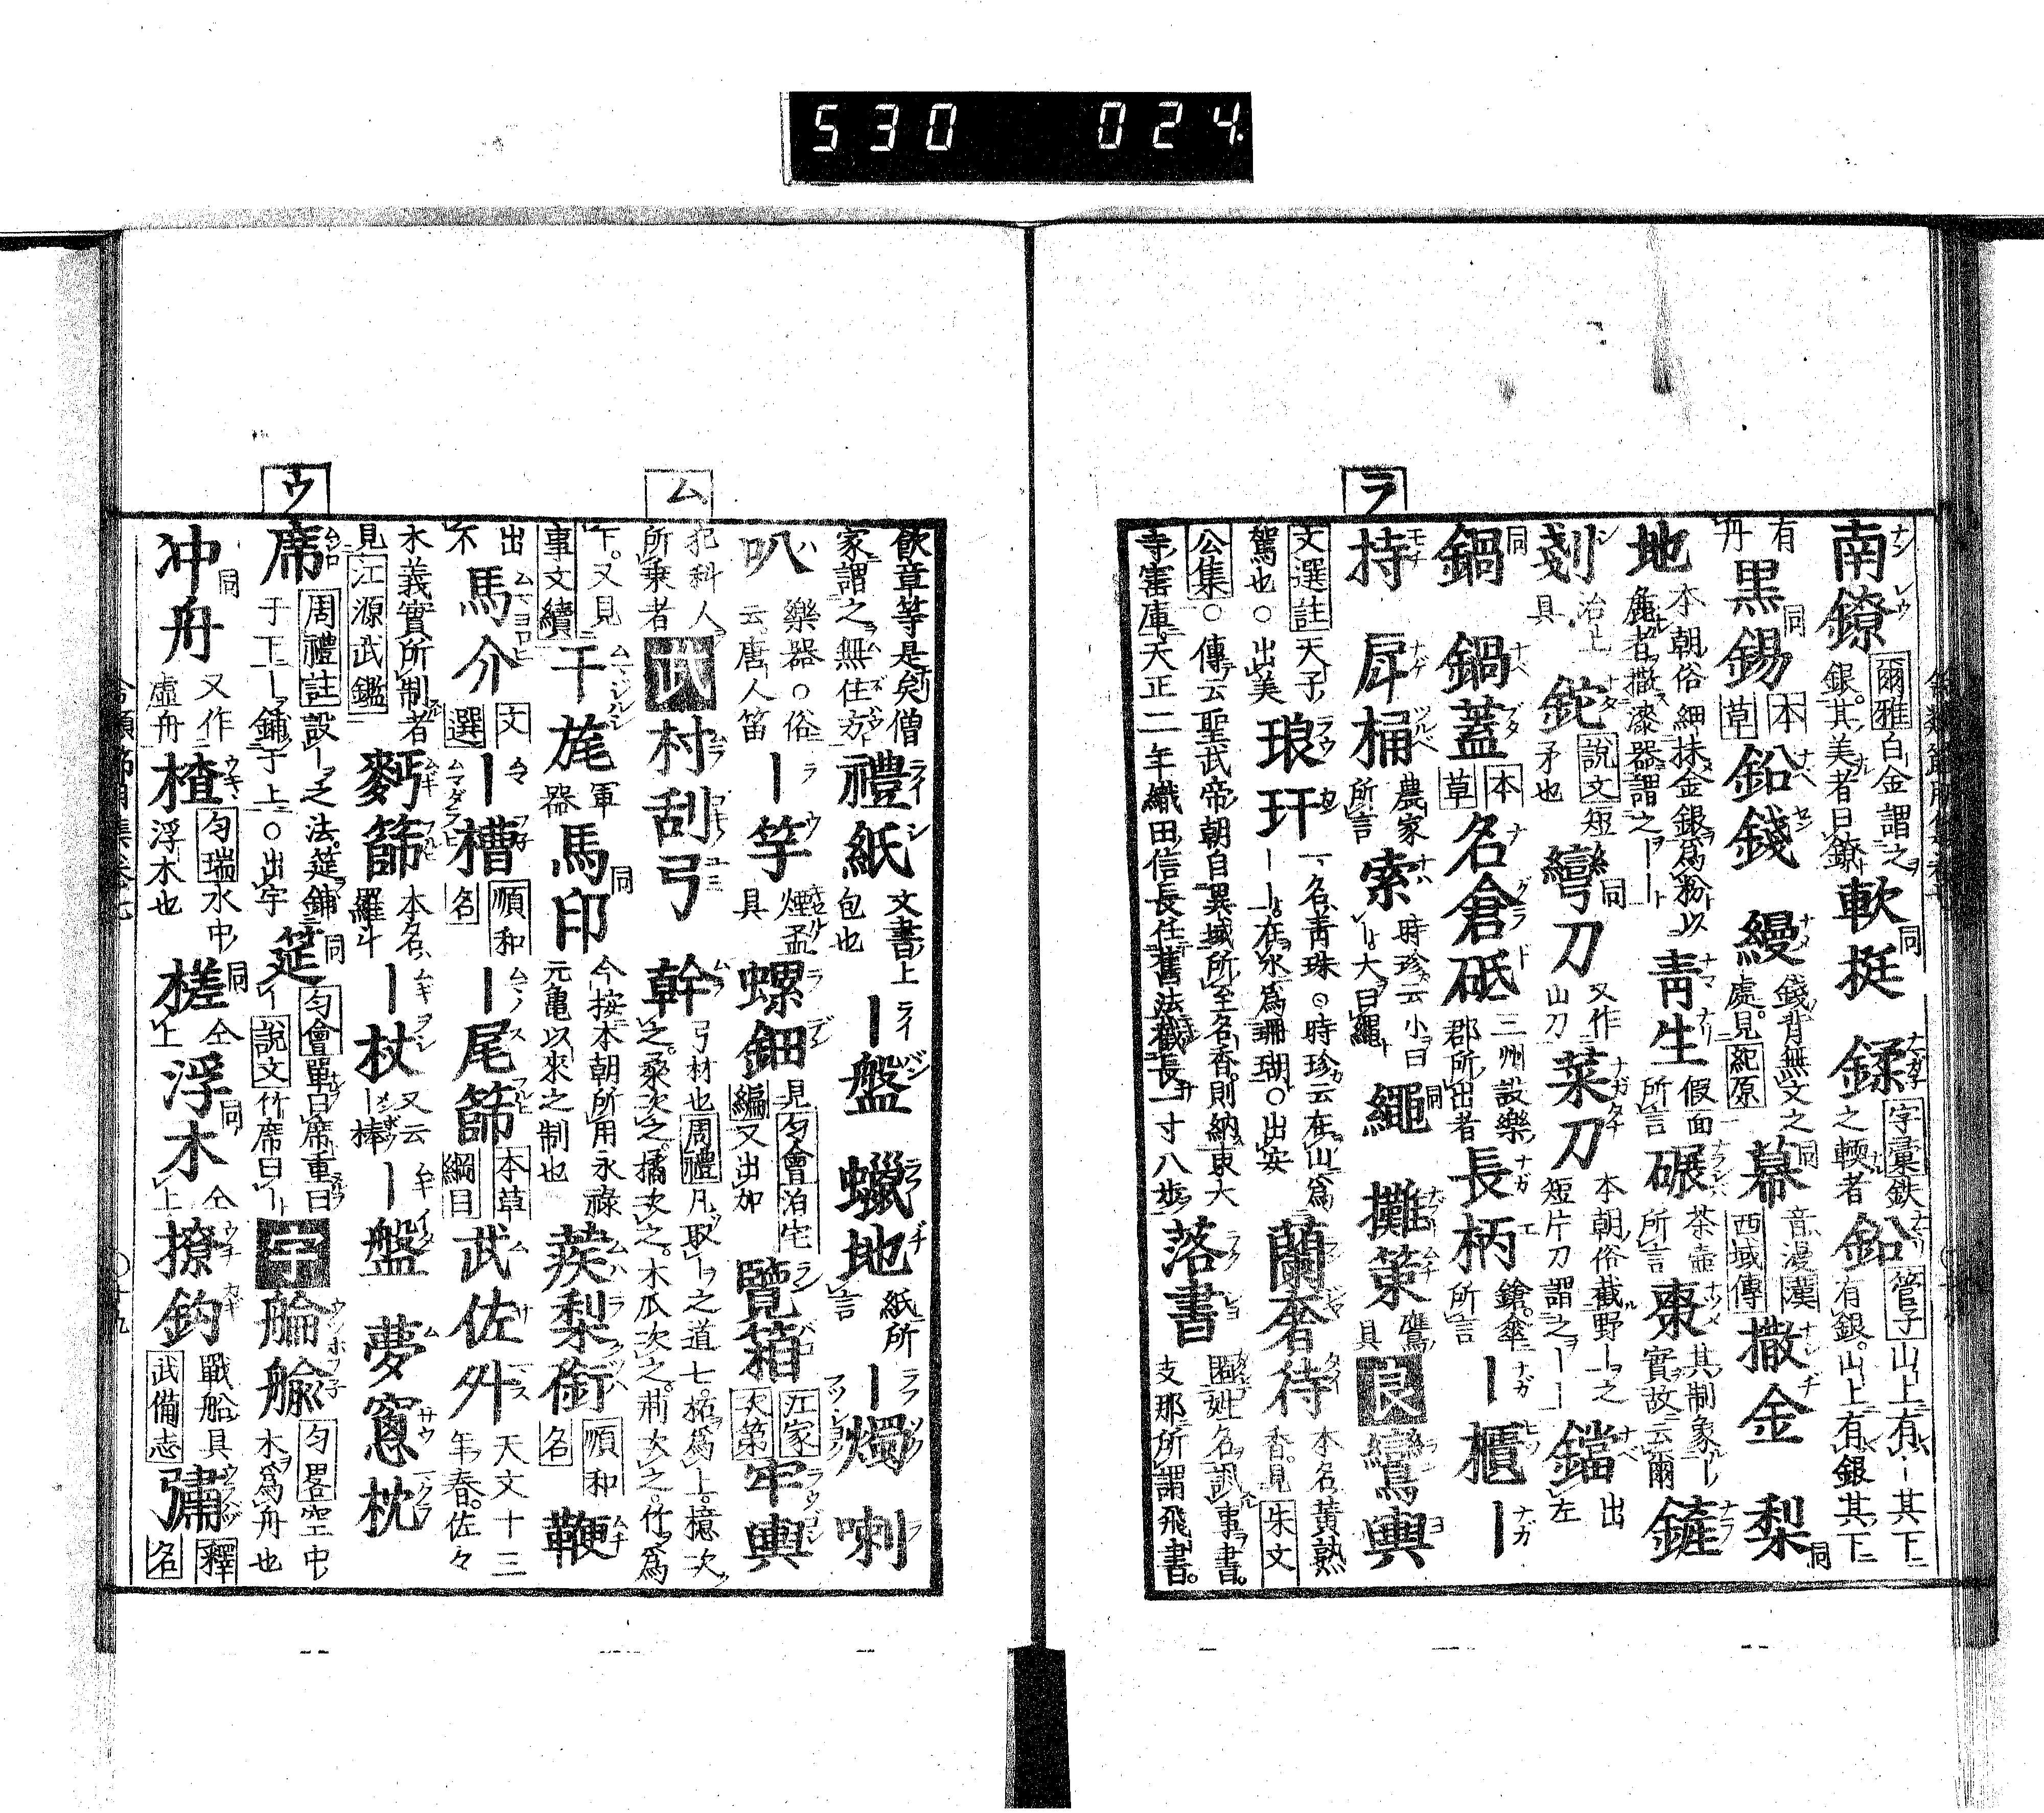 530 024.
ラ
南鐐 爾雅白金謂之銀。其美者曰鐐 軟挺 同 鍒 字彙鉄之輭者 鉛 管子山上有ー其下
有銀。山上有銀其下
有丹 黒錫 同 本草 鉛錢 縵 錢背無文之處。見紀原 幕 同 音漫漢西域傳 撒金 梨
地 同 本朝俗細抹金銀爲粉以麁者撒漆器謂之ーー 青生 假面所言 碾 茶壺所言 棗 其制象ー實故云爾 鏟
剗 治具 鉈 說文短矛也 彎刀 同 又作山刀 菜刀 本朝俗截野ー之短片刀謂之ーー 鐺 出左
鍋 同 鍋蓋 本草 名倉砥 三州設樂郡所出者 長柄 鎗。傘所言 ー櫃 ー
持 戽桶 農家所言 索 時珍云小曰索大曰繩 繩 同 攤策 鷹具 良 鸞輿
文選註天子駕也。出美 琅玕 一名青珠。時珍云在山爲ーー在水爲珊瑚。出安 蘭奢待 本名黃熟香。見朱文
公集。傳云聖武帝朝自異域所至名香。則納東大
寺寳庫。天正二年織田信長任舊法截長一寸八步 落書 匿姓名訊事書。支那所謂飛書。
ム
ウ
飲章等是矣僧家謂之無住方 禮紙 文書上包也 ー盤 蠟地 紙所言 ー燭 喇
叭 樂器。俗云唐人笛 ー竽 煙盃具 螺鈿 見勻會泊宅編又出加 覽箱 江家次第 牢輿
犯科人所乘者 武 村刮弓 幹 弓材也周禮凡取ー之道七。柘爲上。檍次之。桑次之。橘次之。木瓜次之。荊次之。竹爲
下。又見事文續 干旄 軍器 馬印 同 今按本朝所用永祿元亀以來之制也 蒺梨銜 順和名 鞭
出不 馬介 文選 ー槽 順和名 ー尾篩 本草綱目 武佐升 天文十三年春。佐々
木義實所制者見江源武鑑 麪篩 本名羅斗 ー杖 又云ー棒 ー盤 夢窓枕
席 周禮註設ー之法。筵鋪于下ー鋪于上。出宇 筵 同 勻會單曰席重曰ー說文竹席曰ー 宇 艫艅 勻畧空中木爲舟也
冲舟 同 又作虛舟 楂 勻瑞水中浮木也 槎 同 仝上 浮木 同 仝上 撩鈎 戰船具武備志 彇 釋名